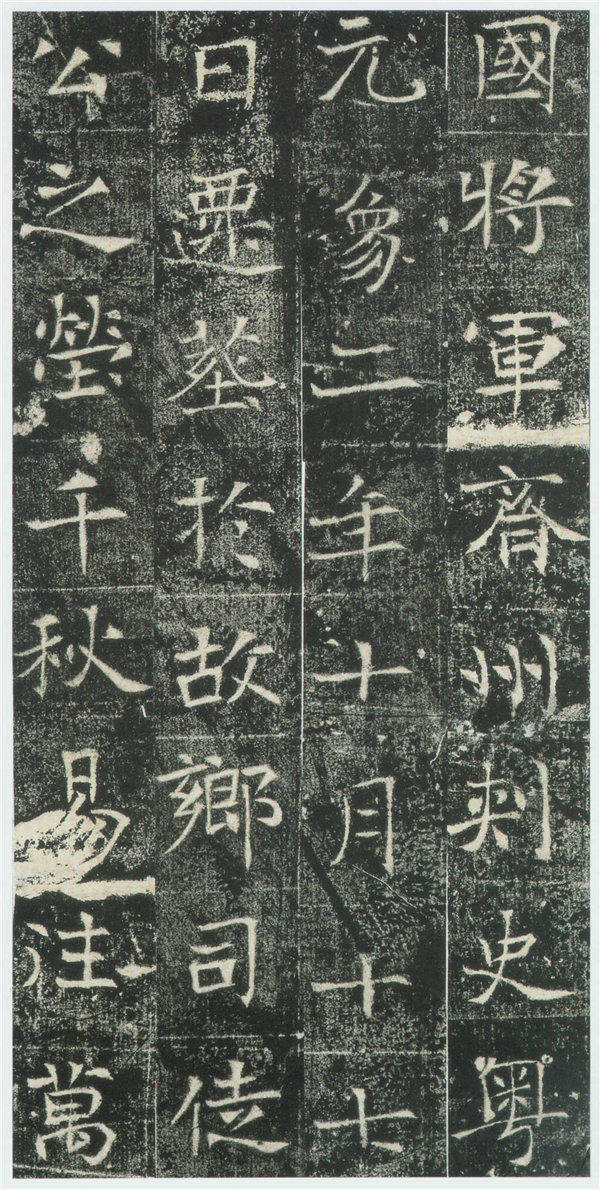 國將軍齊州刺史粵
元象二年十月十七
日遷葬於故鄉司徒
公之塋千秋易往萬